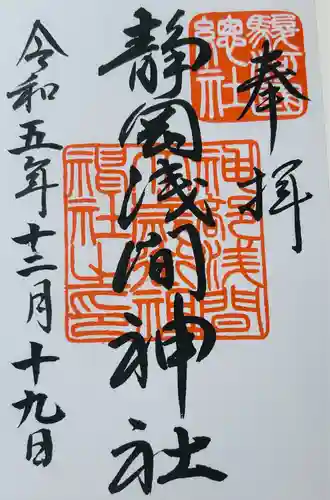 奉拝
駿河國總社
静岡浅間神社
神部浅間大歳御祖神社之印
令和五年十二月十九日